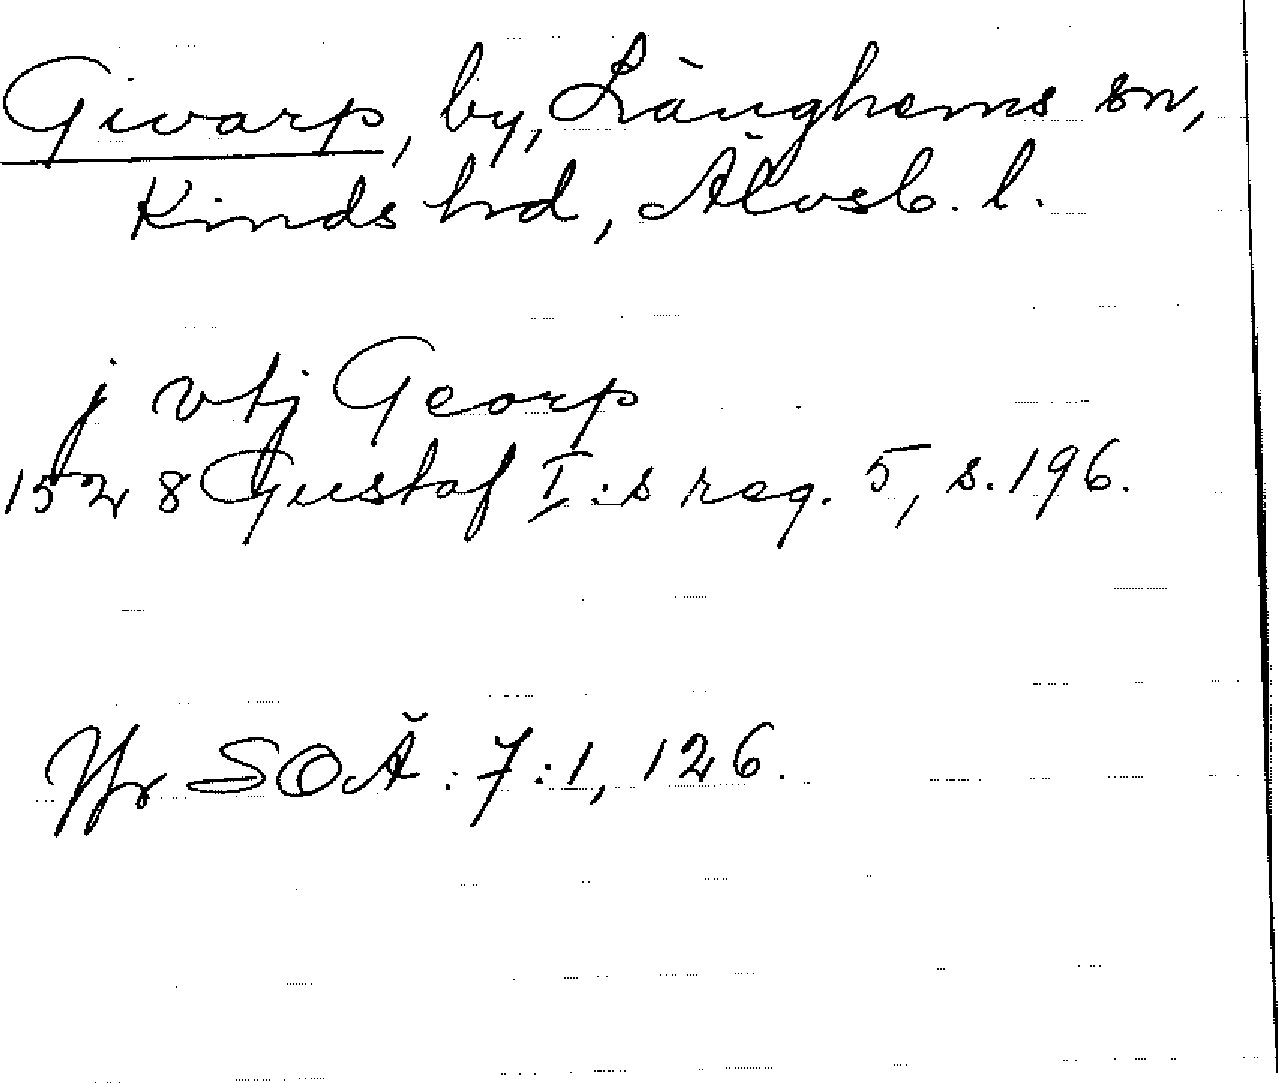 Givarp, by, Länghems sn,
Kinds hd, Älvsb. l.
j vtj Georp
1528 Gustaf I:s reg. 5, s. 196.
Jfr SOÄ: 7:1, 126.